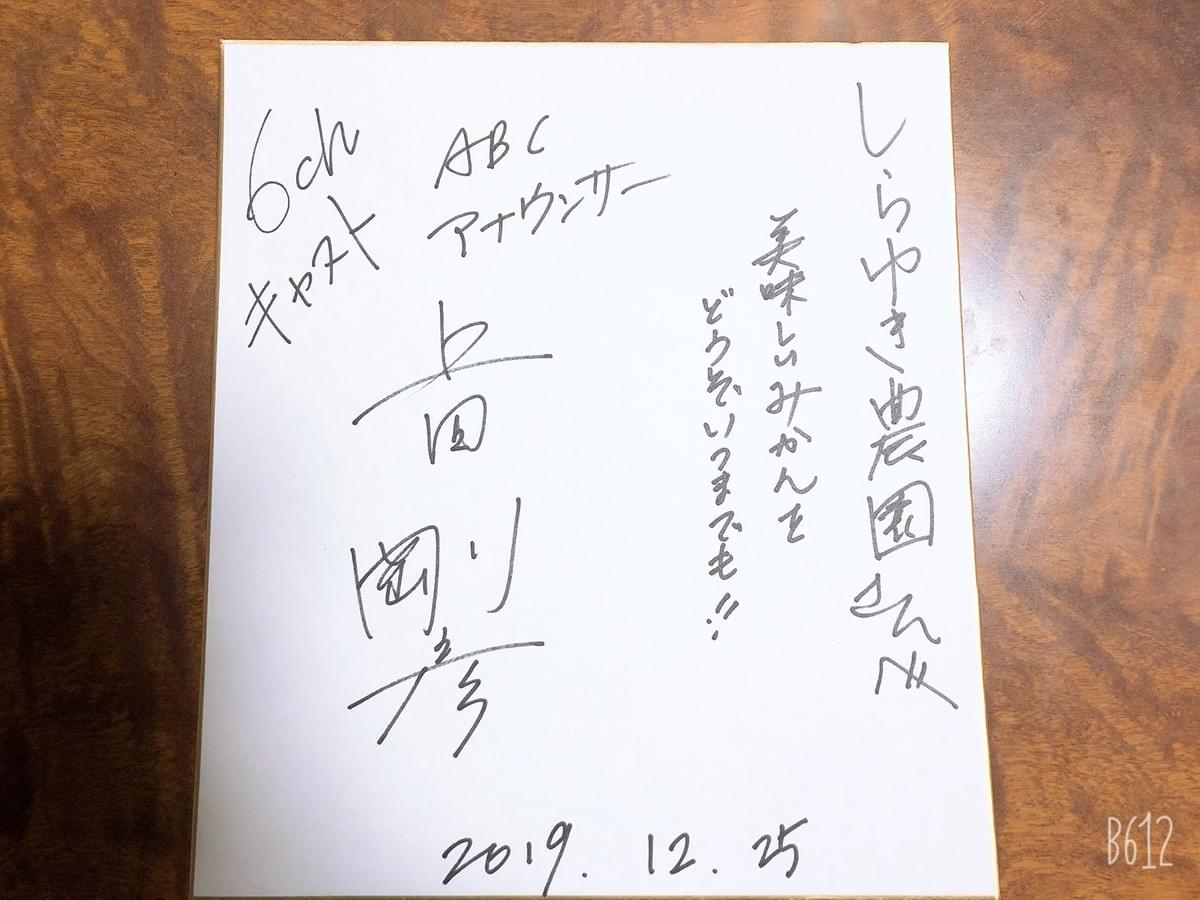 しらゆき農園さんへ
美味しいみかんを
どうぞいつまでも!!
ABC
アナウンサー
上田
剛彦
6ch
キャスト
2019. 12. 25
B612